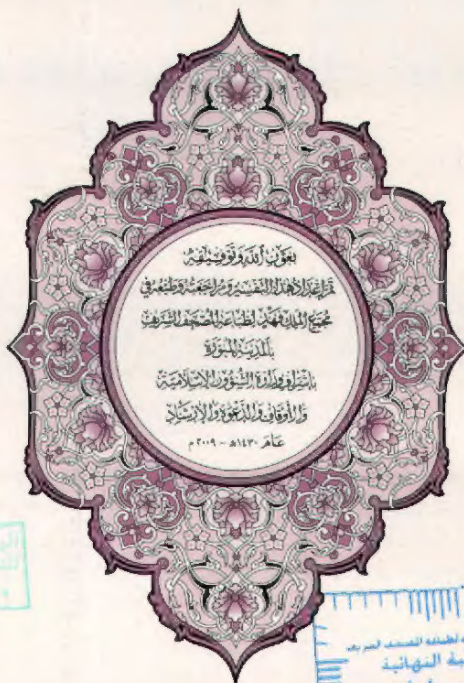 بعون الله وتوفيقه
تم إعداد هذا التفسير ومراجعته وطبعه في
مجمع الملك فهد لطباعة المصحف الشريف
بالمدينة المنورة
بإشراف وزارة الشؤون الإسلامية
والأوقاف والدعوة والإرشاد
عام ١٤٣٠هـ - ٢٠٠٩م
لطباعة المصحف الشريف
النهائية